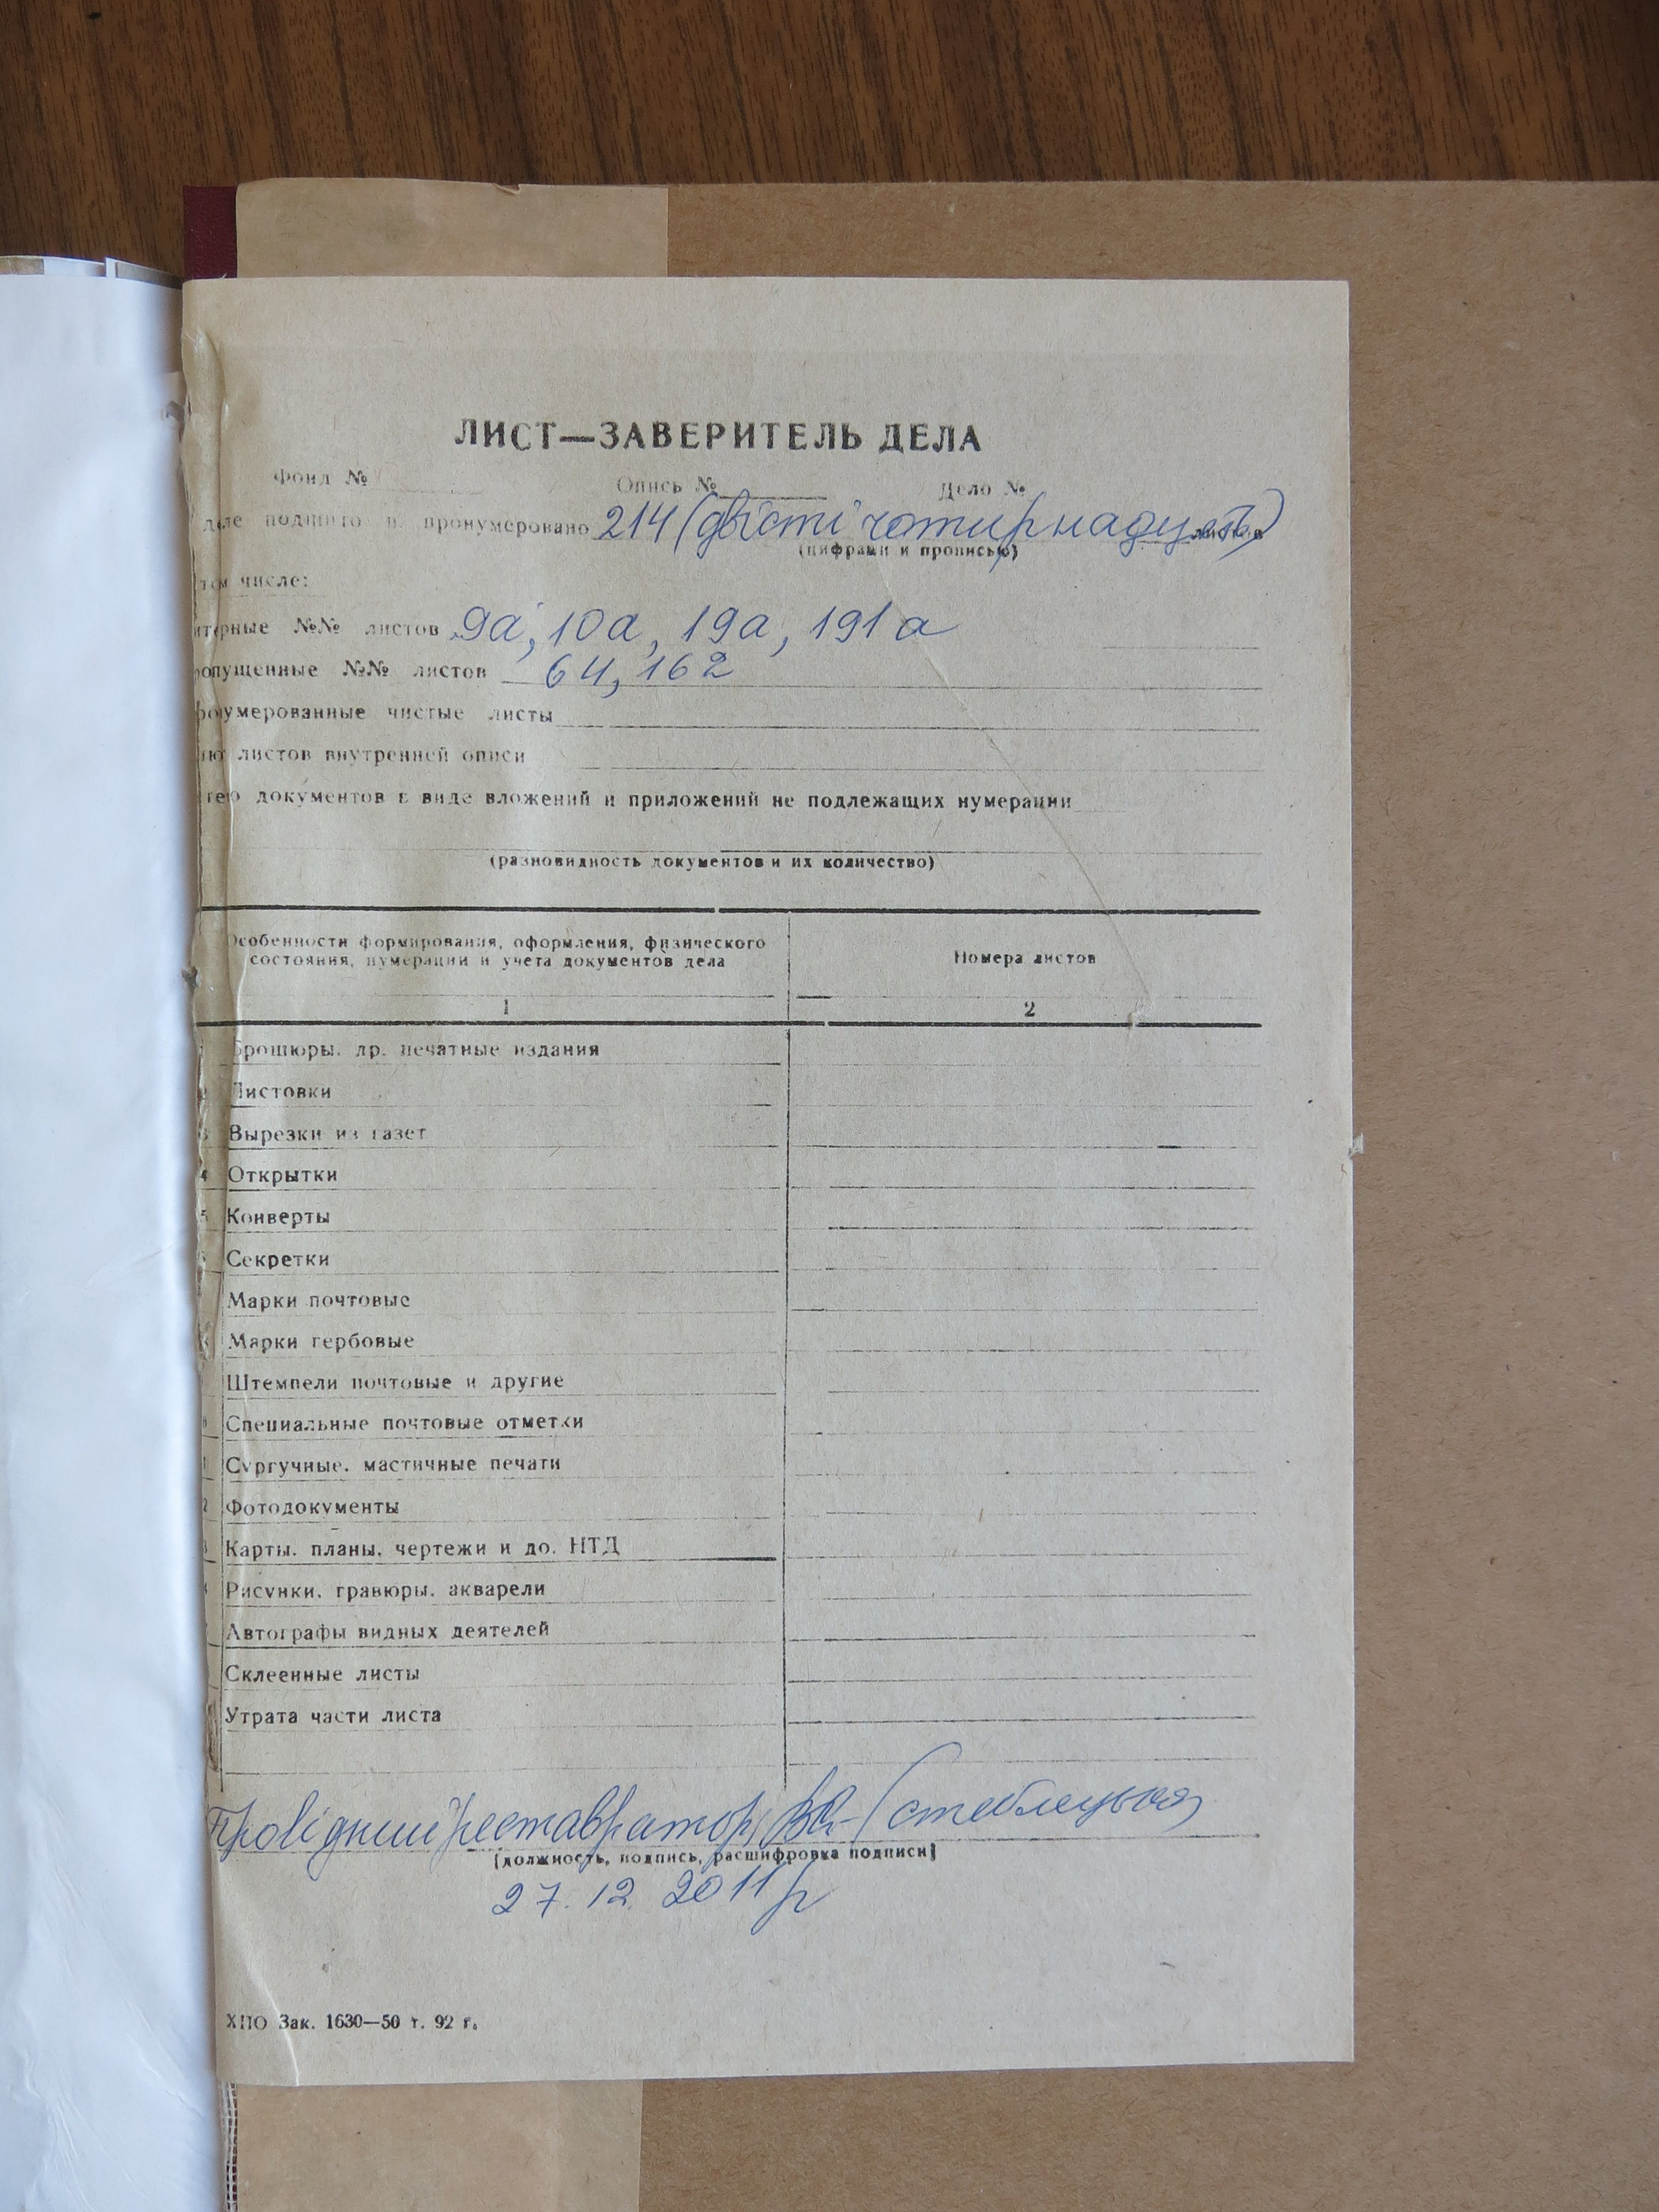 ЛИСТ—ЗАВЕРИТЕЛЬ ДЕЛА
Фонд № Опись № Дело №
деле подшито и пронумеровано 214 (двісті чотирнадцять) листов
(цифрами и прописью)
том числе:
итерные №№ листов 9а, 10а, 19а, 191а
ропущенные №№ листов 64, 162
умерованные чистые листы
листов внутренней описи
документов в виде вложений и приложений не подлежащих нумерации
(разновидность документов и их количество)
Особенности формирования, оформления, физического
состояния, нумерации и учета документов дела
Номера листов
1 2
Брошюры. др. печатные издания
Листовки
Вырезки из газет
4 Открытки
5 Конверты
Секретки
Марки почтовые
Марки гербовые
Штемпели почтовые и другие
Специальные почтовые отметки
Сургучные. мастичные печати
2 Фотодокументы
Карты. планы. чертежи и до. НТД
Рисунки. гравюры. акварели
Автографы видных деятелей
Склеенные листы
Утрата части листа
Провідний реставратор (Стеблецька)
(должность, подпись, расшифровка подписи)
27. 12. 2011 р
ХПО Зак. 1630—50 т. 92 г.